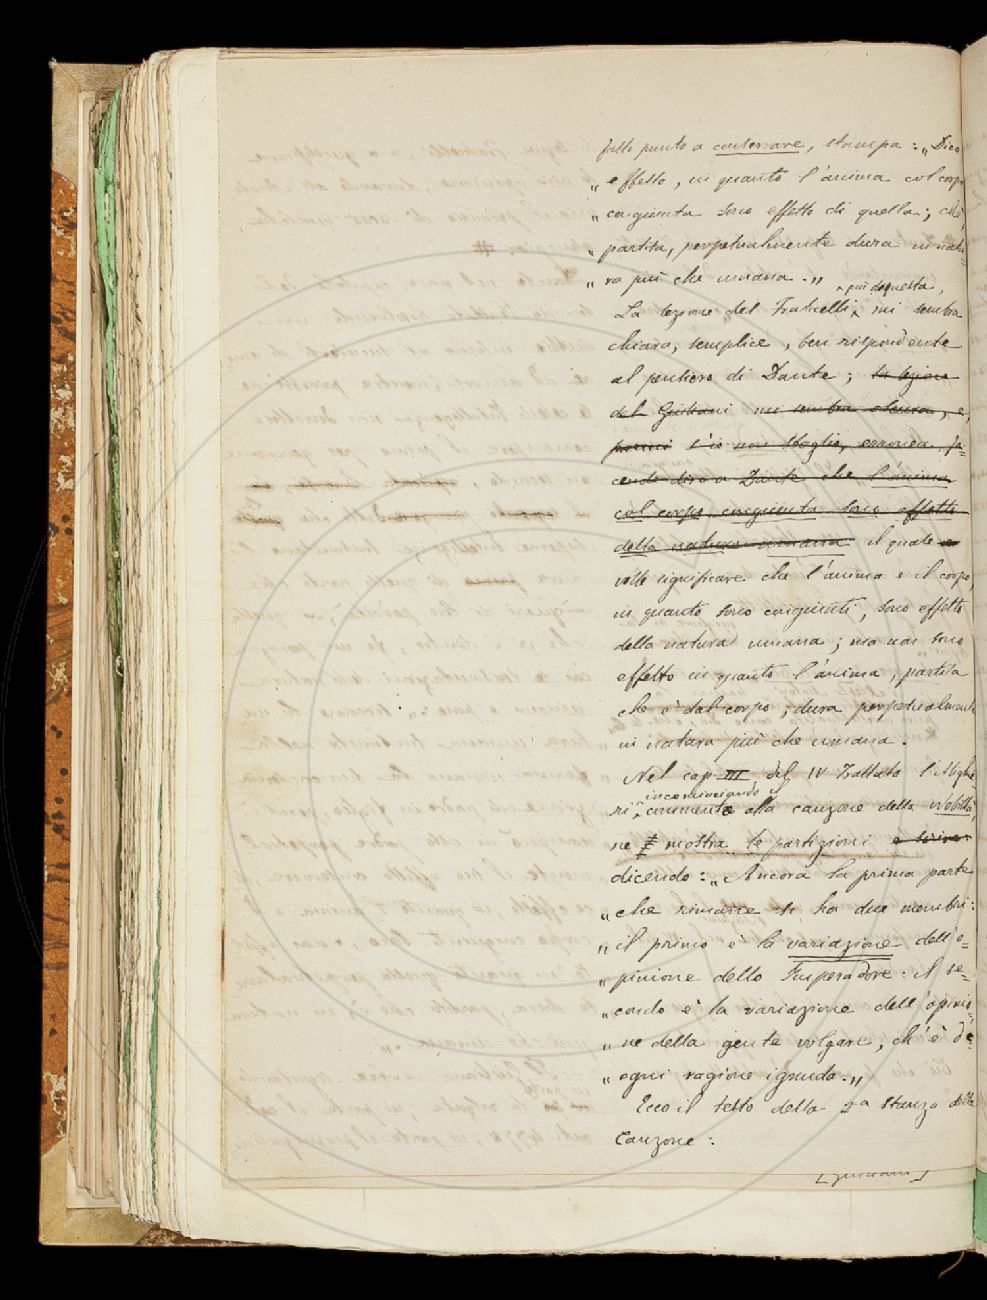 fatto punto a conservare, stampa: „ Dico
„ effetto, in quanto l'anima col corpo
„ congiunta sono effetto di quella; chè
„ partita, perpetualmente dura in natu=
„ ra più che umana. „
più di questa,
La lezione del Fraticelli, mi sembra
chiara, semplice, ben rispondente
al pensiero di Dante; la lezione
del Giuliani mi sembra oscura, e,
parmi s'io non sbaglio, erronea, fa=
cendo dire a Dante che l'anima
col corpo congiunta sono effetto
della natura umana il quale
volle significare che l'anima e il corpo,
in quanto sono congiunti, sono effetto
della natura umana; ma non sono
effetto in quanto l'anima, partita
che è dal corpo, dura perpetualmente
in natura più che umana.
Nel cap. III del IV Trattato l'Alighie=
incominciando il
ri, commento alla canzone della Nobiltà,
ne mostra le partizioni e scrive:
dicendo: „ Ancora la prima parte
„ che rimane si ha due membri:
„ il primo è la variazione dell'o=
„ pinione dello Imperadore: il se=
„ condo è la variazione dell'opinio=
„ ne della gente volgare, ch'è d'
„ ogni ragione ignuda. „
Ecco il testo della 2ª stanza della
Canzone:
[Giuliani]